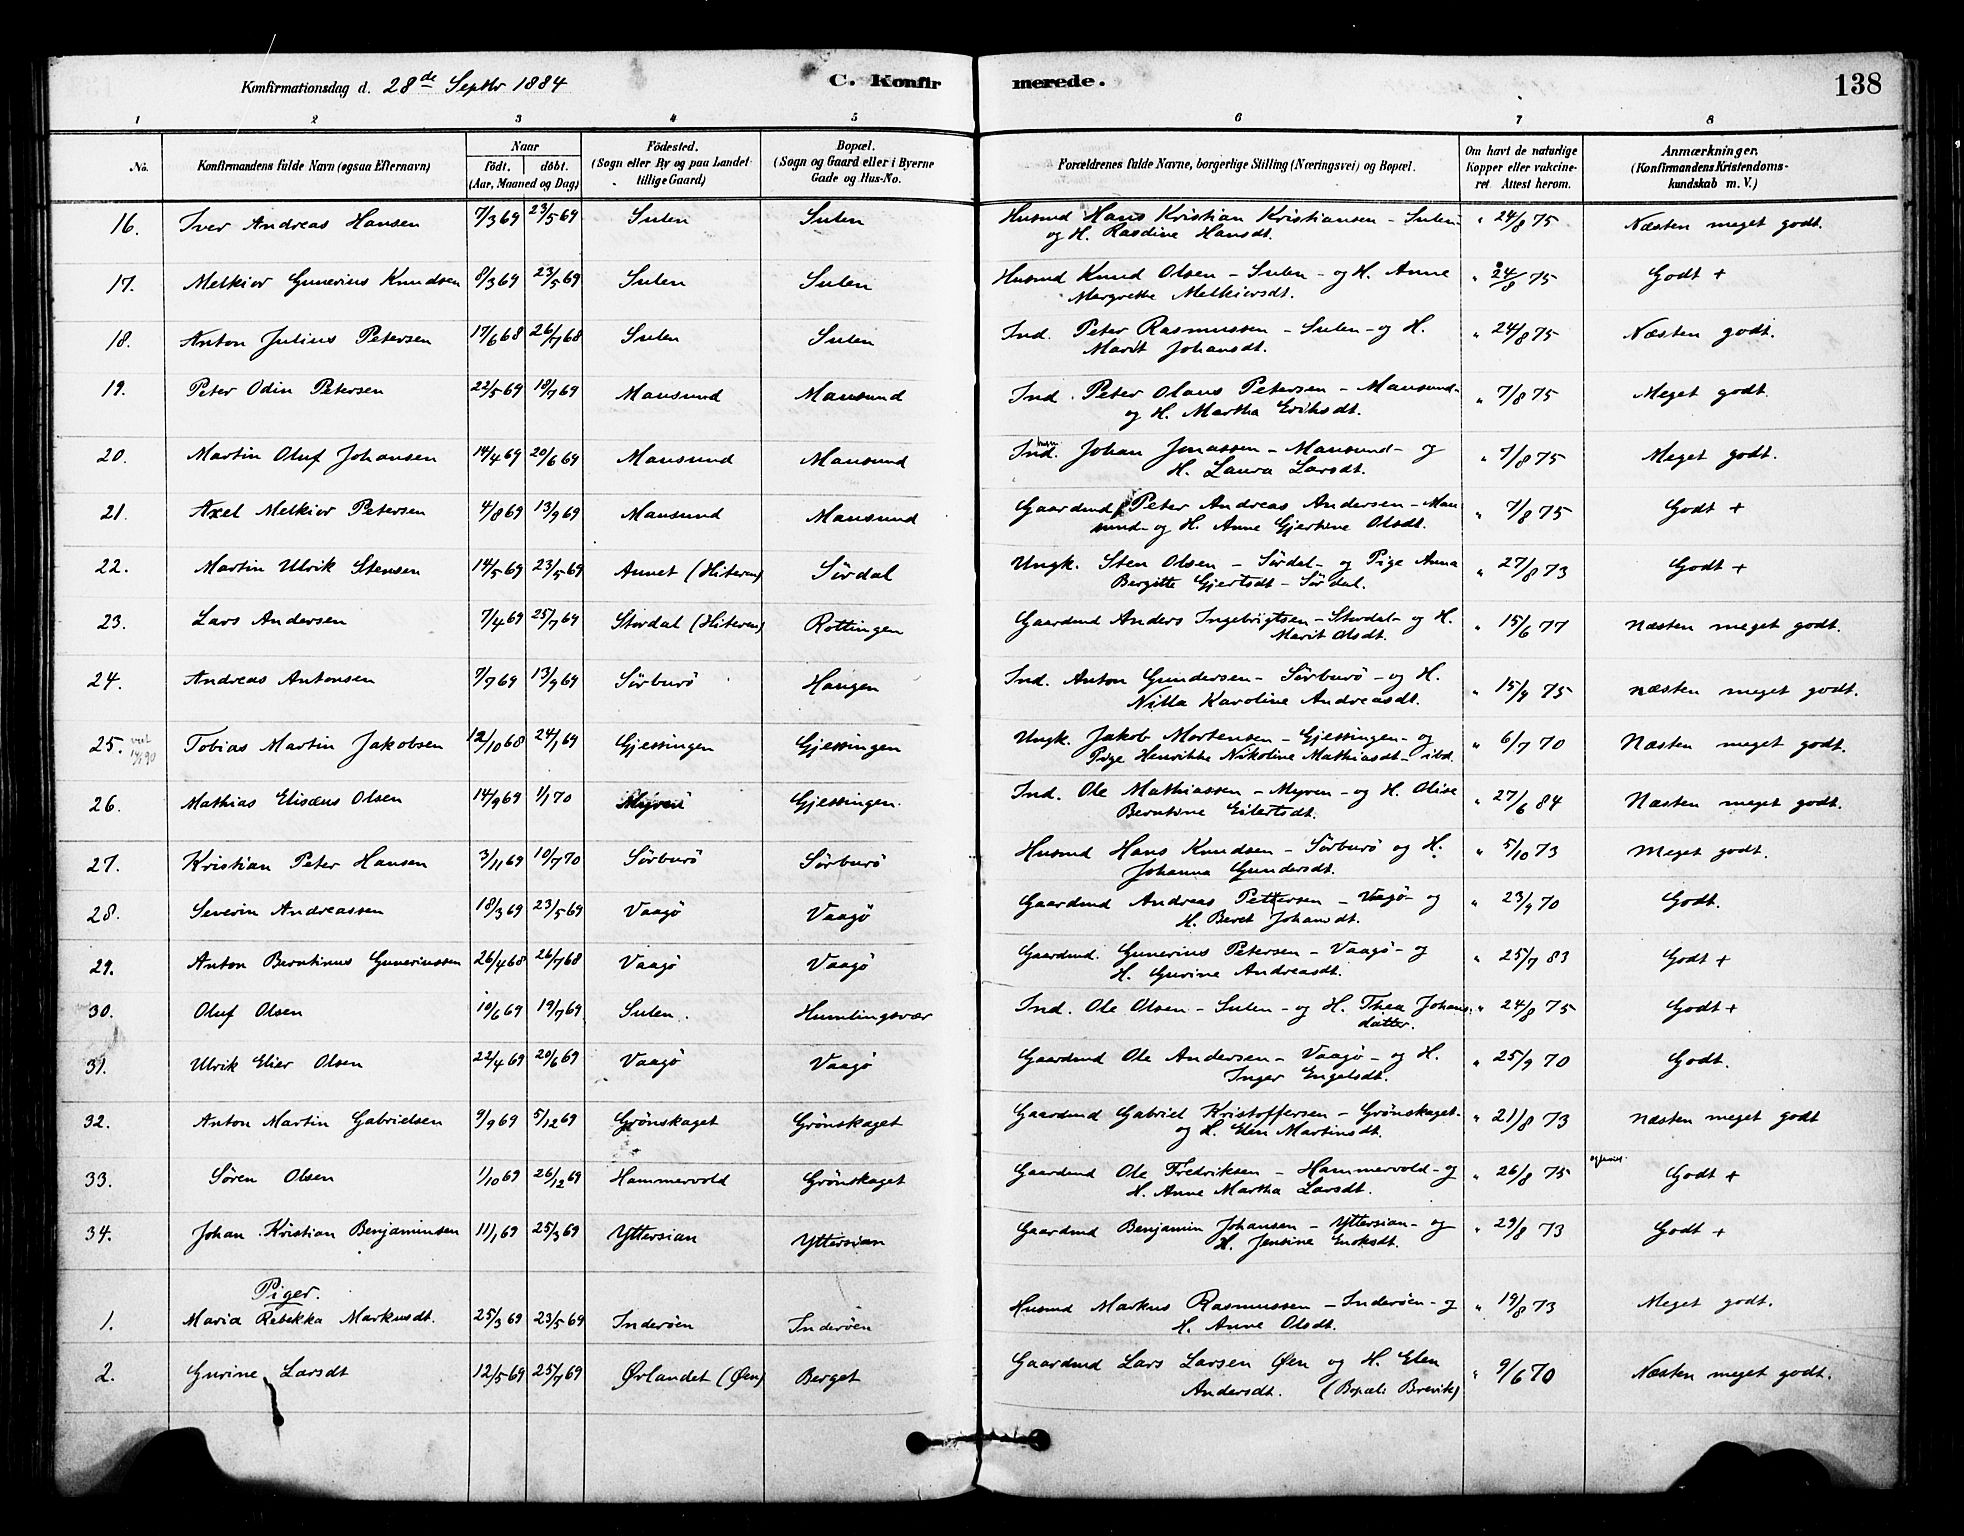 Konfirmationsdag d. 28de Septbr 1884 C. Konfirmerede. 138
1 2 3 4 5 6 7 8
No. Konfirmandens fulde Navn (ogsaa Efternavn) Naar födt. döbt. (Aar, Maaned og Dag) Födested. (Sogn eller By og paa Landet tillige Gaard) Bopæl. (Sogn og Gaard eller i Byerne Gade og Hus-No. Forældrenes fulde Navne, borgerlige Stilling (Næringsvei) og Bopæl. Om havt de naturlige Kopper eller vakcineret. Attest herom. Anmærkninger. (Konfirmandens Kristendomskundskab m. V.)
16. Iver Andreas Hansen 7/3 69 23/5 69 Sulen Sulen Husmd Hans Kristian Kristiansen - Sulen - " 24/8 75 Næsten meget godt.
og H. Rasdine Hansdt.
17. Melkior Gunerius Knudsen 8/3 69 23/5 69 Sulen Sulen Husmd Knud Olsen - Sulen - og H. Anne " 24/8 75 Godt +
Margrethe Melkiorsdt.
18. Anton Julius Petersen 17/6 68 26/7 68 Sulen Sulen Ind. Peter Rasmussen - Sulen - og H. " 24/8 75 Næsten godt.
Marit Johansdt.
19. Peter Odin Petersen 22/5 69 18/7 69 Mausund Mausund Ind. Peter Olaus Petersen - Mausund - " 7/8 75 Meget godt.
og H. Martha Eriksdt.
20. Martin Oluf Johansen 14/4 69 20/6 69 Mausund Mausund Ind. Johan Jonassen - Mausund - og " 7/8 75 Meget godt.
H. Laura Larsdt.
21. Axel Melkior Petersen 4/8 69 13/9 69 Mausund Mausund Gaardmd Peter Andreas Andersen - Mau " 7/8 75 Godt +
sund - og H. Anne Gjertine Olsdt.
22. Martin Ulrik Stensen 14/5 69 23/5 69 Aunet (Hiteren) Sördal Ungk. Sten Olsen - Sördal - og Pige Anna " 27/8 73 Godt +
Bergitte Gjertsdt - Sördal.
23. Lars Andersen 7/4 69 25/7 69 Stordal (Hiteren) Rottingen Gaardmd Anders Ingebrigtsen - Stordal - og H. " 15/6 77 Næsten meget godt.
Marit Olsdt.
24. Andreas Antonsen 7/7 69 13/9 69 Sörburö Haugen Ind. Anton Gundersen - Sörburö - og H. " 15/9 75 Næsten meget godt.
Nilla Karoline Andreasdt.
25. Tobias Martin Jakobsen 12/10 68 24/1 69 Gjessingen Gjessingen Ungk. Jakob Mortensen - Gjessingen - og " 6/7 70 Næsten meget godt.
Pige Henrikke Nikoline Mathiasdt - ibd.
26. Mathias Elisæus Olsen 14/9 69 1/1 70 Myren Gjessingen. Ind. Ole Mathiassen - Myren - og H. Olise " 27/6 84 Næsten meget godt.
Berntine Eilertsdt.
27. Kristian Peter Hansen 3/11 69 10/7 70 Sörburö Sörburö Husmd Hans Knudsen - Sörburö og H. " 5/10 73 Meget godt.
Johanna Gundersdt.
28. Severin Andreassen 18/3 69 23/5 69 Vaagö Vaagö Gaardmd Andreas Pettersen - Vaagö - og " 23/9 70 Godt.
H. Beret Johansdt.
29. Anton Berntinus Guneriussen 26/4 68 26/7 68 Vaagö Vaagö Gaardmd. Gunerius Petersen - Vaagö - og " 25/7 83 Godt +
H. Gurine Andreasdt.
30. Oluf Olsen 10/6 69 19/7 69 Sulen. Humlingsvær Ind. Ole Olsen - Sulen - og H. Thea Johans " 24/8 75 Godt +
datter.
31. Ulrik Elier Olsen 22/4 69 20/6 69 Vaagö Vaagö Gaardmd Ole Andersen - Vaagö - og H. " 25/9 70 Godt.
Inger Engelsdt.
32. Anton Martin Gabrielsen 9/9 69 5/12 69 Grönskaget Grönskaget Gaardmd Gabriel Kristoffersen - Grönskaget - " 21/8 73 Næsten meget godt
og H. Elen Martinsdt.
33. Sören Olsen 1/10 69 26/12 69 Hammervold Grönskaget Gaardmd Ole Fredriksen - Hammervold - og " 26/8 75 Godt +
H. Anne Martha Larsdt.
34. Johan Kristian Benjaminsen 11/1 69 25/3 69 Yttersian Yttersian Gaardmd Benjamin Johansen - Yttersian - og " 29/8 73 Godt +
H. Jensine Enoksdt.
Piger.
1. Maria Rebekka Markusdt. 25/3 69 23/5 69 Inderöen Inderöen Husmd Markus Rasmussen - Inderöen - og " 19/8 73 Meget godt.
H. Anne Olsdt.
2. Gurine Larsdt 12/5 69 25/7 69 Ørlandet (Øen) Berget Gaardmd Lars Larsen Øen og H. Elen " 9/6 70 Næsten meget godt.
Andersdt. (Bopæl: Brevik)